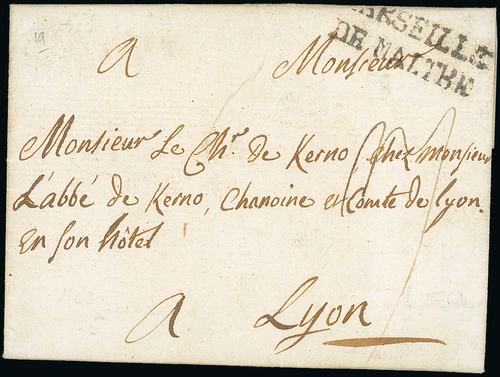 19
MARSEILLE
DE MALTHE
A Monsieur
Monsieur Le Chr. de Kerno, chez monsieur
L'abbé de Kerno, Chanoine et Comte de Lyon.
En son hôtel
A Lyon